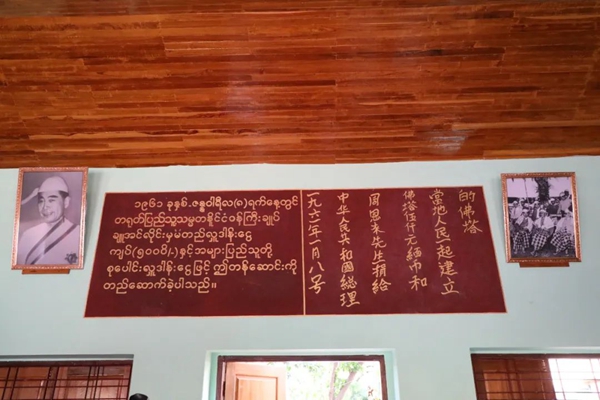 ၁၉၆၁ ခုနှစ်၊ ဇန္နဝါရီလ(၈)ရက်နေ့တွင်
တရုတ်ပြည်သူ့သမ္မတနိုင်ငံဝန်ကြီးချုပ်
ချူအင်လိုင်းမှမတည်လှူဒါန်းငွေ
ကျပ်(၅၀၀၀ိ/)နှင့်အများပြည်သူတို့
စုပေါင်းလှူဒါန်းငွေဖြင့် ဤတန်ဆောင်းကို
တည်ဆောက်ခဲ့ပါသည်။
一九六一年一月八号
中华人民共和國總理
周恩来先生捐給
佛塔伍仟元緬币和
當地人民一起建立
的佛塔